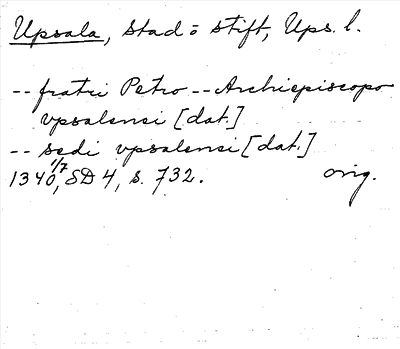 Upsala, stad o stift, Ups. l.
-- fratri Petro -- Archiepiscopo
vpsalensi [dat.]
-- sedi vpsalensi [dat.]
1340 1/7, SD 4, s. 732. orig.